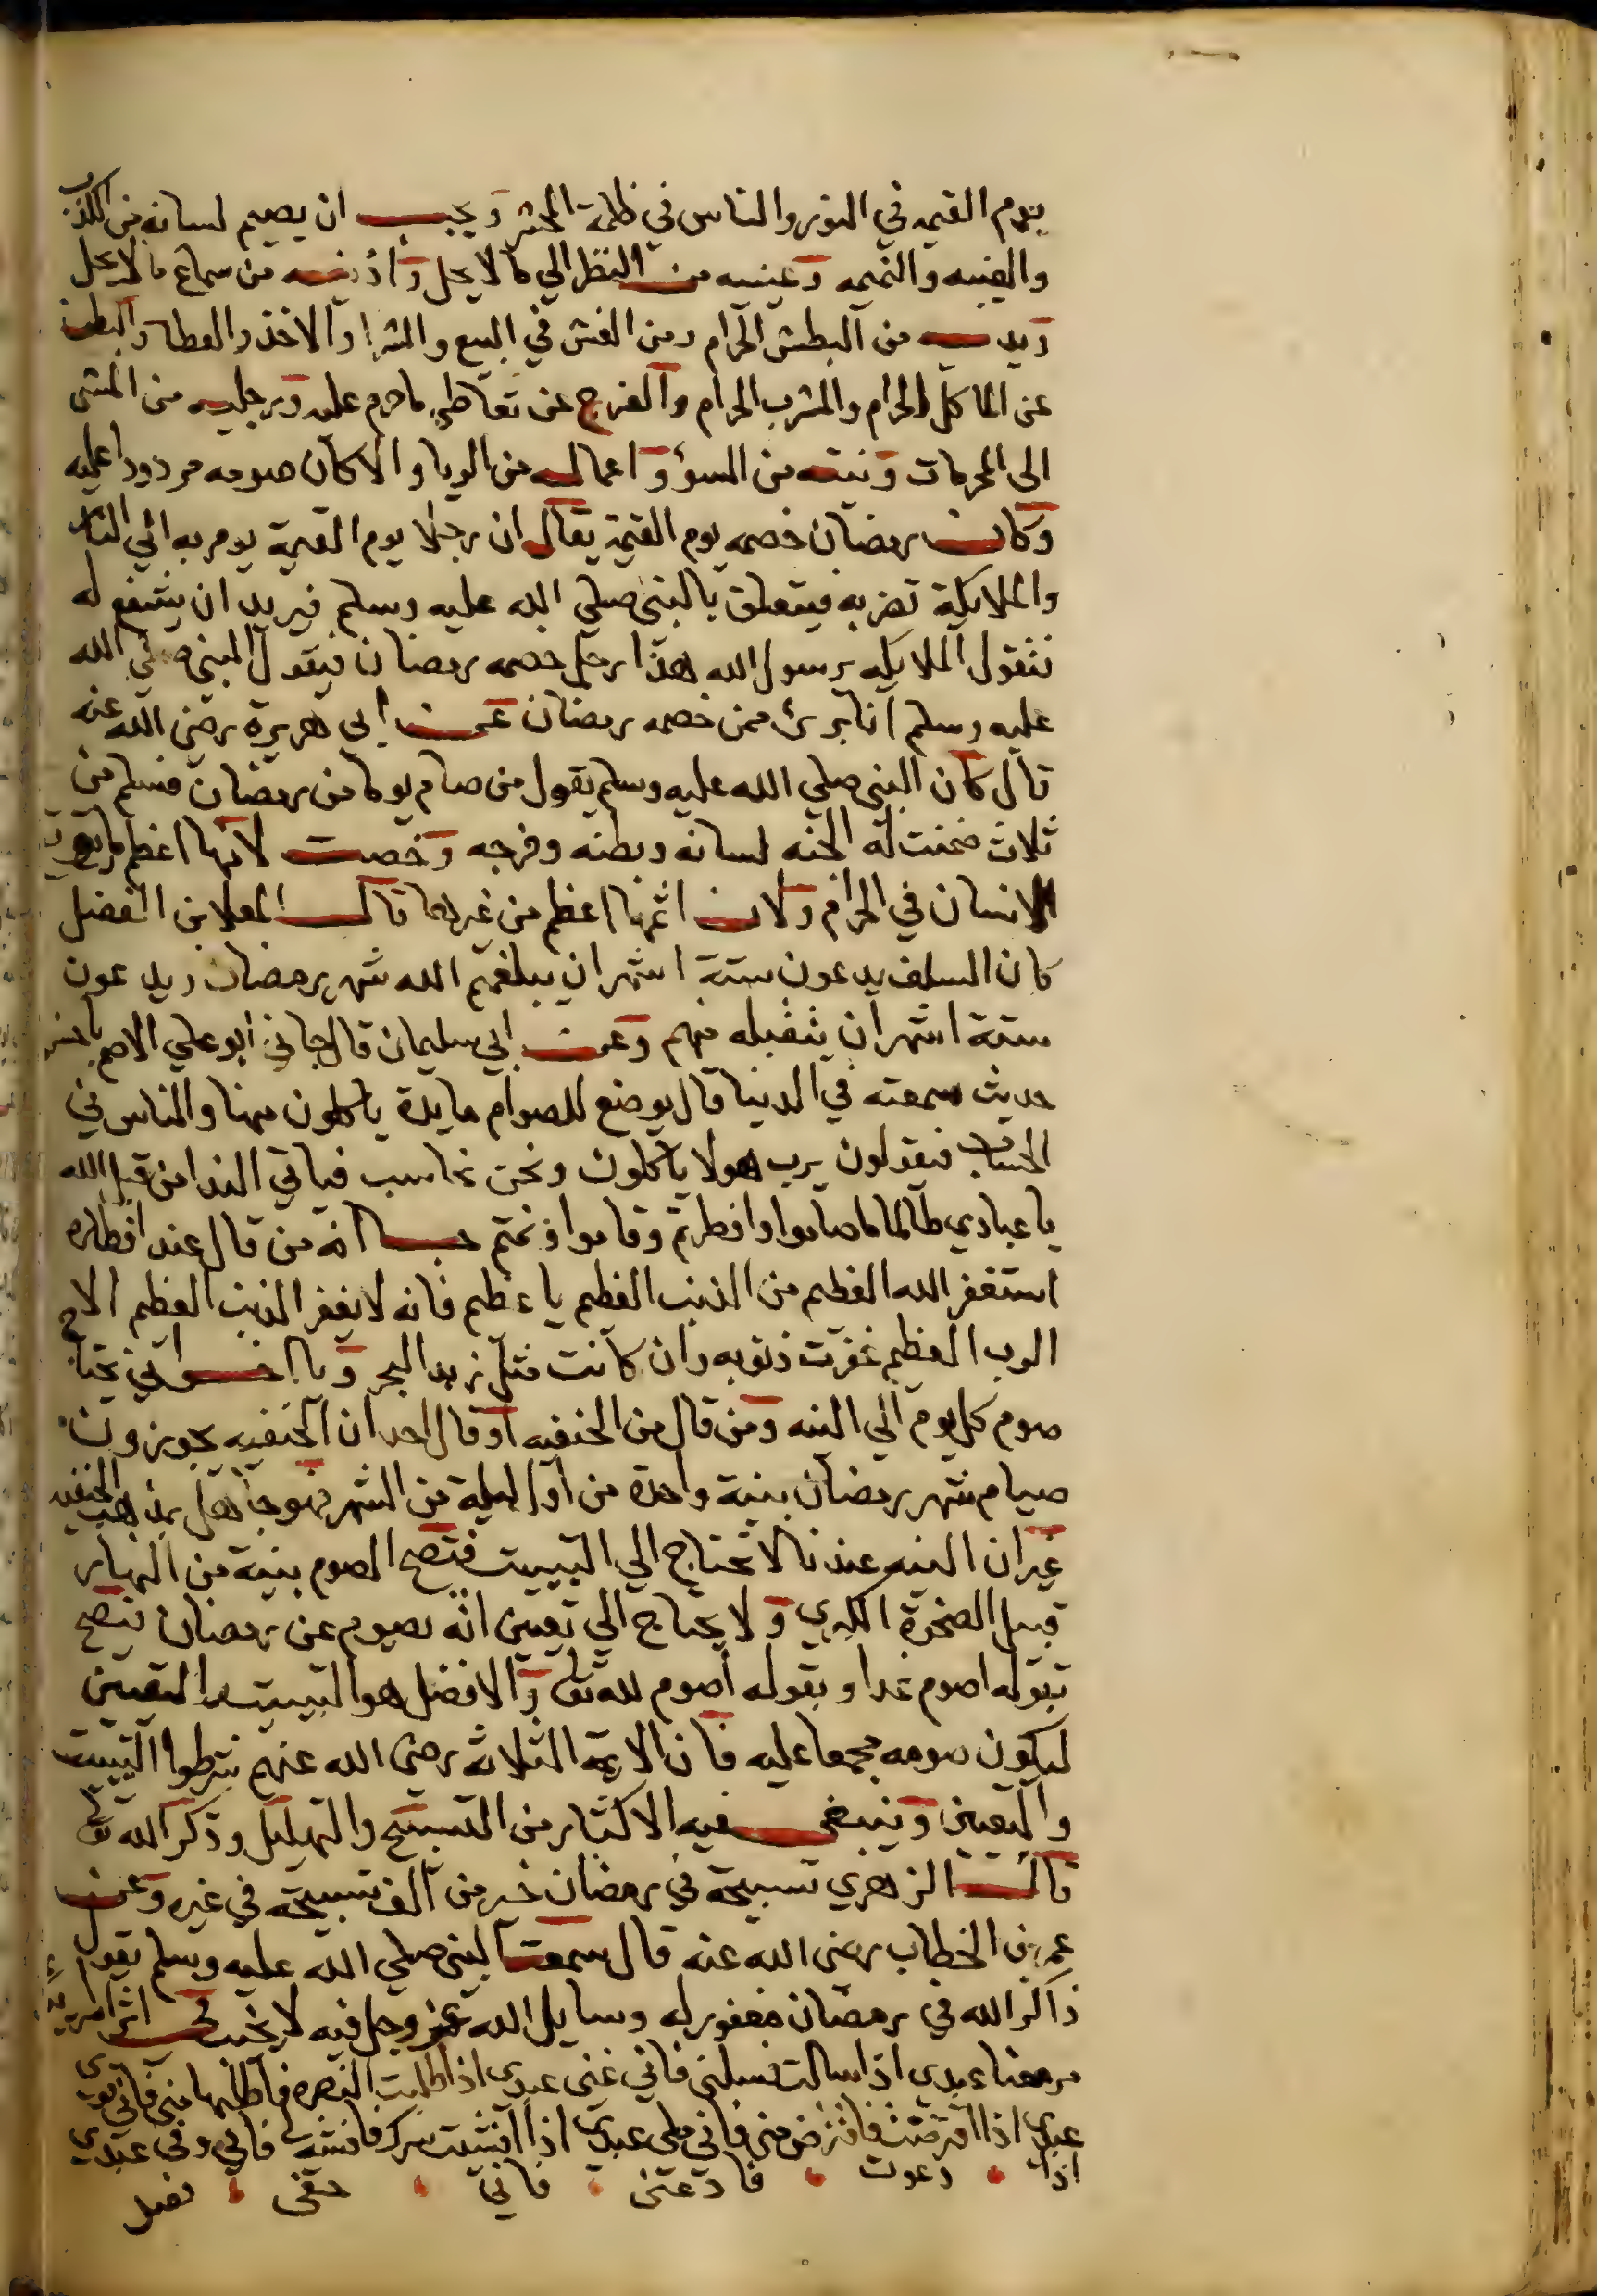 يوم القيمه في النور والناس في ظلمة المحشر ويجب ان يصيم لسانه من الكذب
والغيبه والنميمه وعينيه من النظر الي ما لا يحل واذنيه من سماع ما لا يحل
ويديه من البطش الحرام ومن الغش في البيع والشرا والاخذ والعطا والبطن
عن الماكل الحرام والمشرب الحرام والفرج عن تعاطي ما حرم عليه ورجليه من المشي
الى المحرمات ونيته من السوء واعماله من الريا والا كان صومه مردودا عليه
وكان رمضان خصمه يوم القيمة يقال ان رجلا يوم القيمة يومر به الي النار
والملايكة تضربه فيتعلق بالنبي صلي الله عليه وسلم فيريد ان يشفع له
فتقول الملايكه يرسول الله هذا رجل خصمه رمضان فيقول النبي صلي الله
عليه وسلم انا برئ ممن خصمه رمضان عن ابي هريرة رضي الله عنه
قال كان النبي صلي الله عليه وسلم يقول من صام يوما من رمضان فسلم من
ثلاث ضمنت له الجنه لسانه وبطنه وفرجه وخصت لانها اعظم ما يوقع
الانسان في الحرام ولان اثمها اعظم من غيرها قال المعلا بن الفضل
كان السلف يدعون ستة اشهر ان يبلغهم الله شهر رمضان ويدعون
ستة اشهر ان يتقبله منهم وعن ابي سليمان قال جاني ابو علي الاصم باحسن
حديث سمعته في الدنيا قال يوضع للصوام مايدة ياكلون منها والناس في
الحساب فيقولون يرب هولا ياكلون ونحن نحاسب فياتي الندا من قبل الله
يا عبادي طالما صاموا وافطرتم وقاموا ونمتم جا انه من قال عند افطاره
استغفر الله العظيم من الذنب العظيم يا عظيم فانه لا يغفر الذنب العظيم الا
الرب العظيم غفرت ذنوبه وان كانت مثل زبد البحر ويا اخواني يحتاج
صوم كل يوم الي النيه ومن قال من الحنفيه او قال احد ان الحنفيه يجوزون
صيام شهر رمضان بنية واحدة من اول ليلة من الشهر فهو جاهل بمذهب الحنفيه
غير ان النيه عندنا لا تحتاج الي التبييت فتصح الصوم بنية من النهار
قبيل الضحوة الكبري ولا يحتاج الي تعيين انه يصوم عن رمضان فتصح
بقوله اصوم غدا وبقوله اصوم لله تعالي والافضل هو التبييت والتعيين
ليكون صومه مجمعا عليه فان الايمة الثلاثة رضي الله عنهم شرطوا التبييت
والتعيين وينبغي فيه الاكثار من التسبيح والتهليل وذكر الله تعالي
قال الزهري تسبيحة في رمضان خير من الف تسبيحة في غيره وعن
عمر بن الخطاب رضي الله عنه قال سمعت النبي صلي الله عليه وسلم يقول
ذاكر الله في رمضان مغفور له وسايل الله عز وجل فيه لا يخيب
عبدي اذا سالت فسلني فاني غني عبدي اذا طلبت النصره فاطلبها مني فاني قوي
عبدي اذا اقرضت فاقرض مني فاني ملي عبدي اذا افشيت سرك فافشه لي فاني وفي عبدي
اذا دعوت فادعني فاني حفي فصل